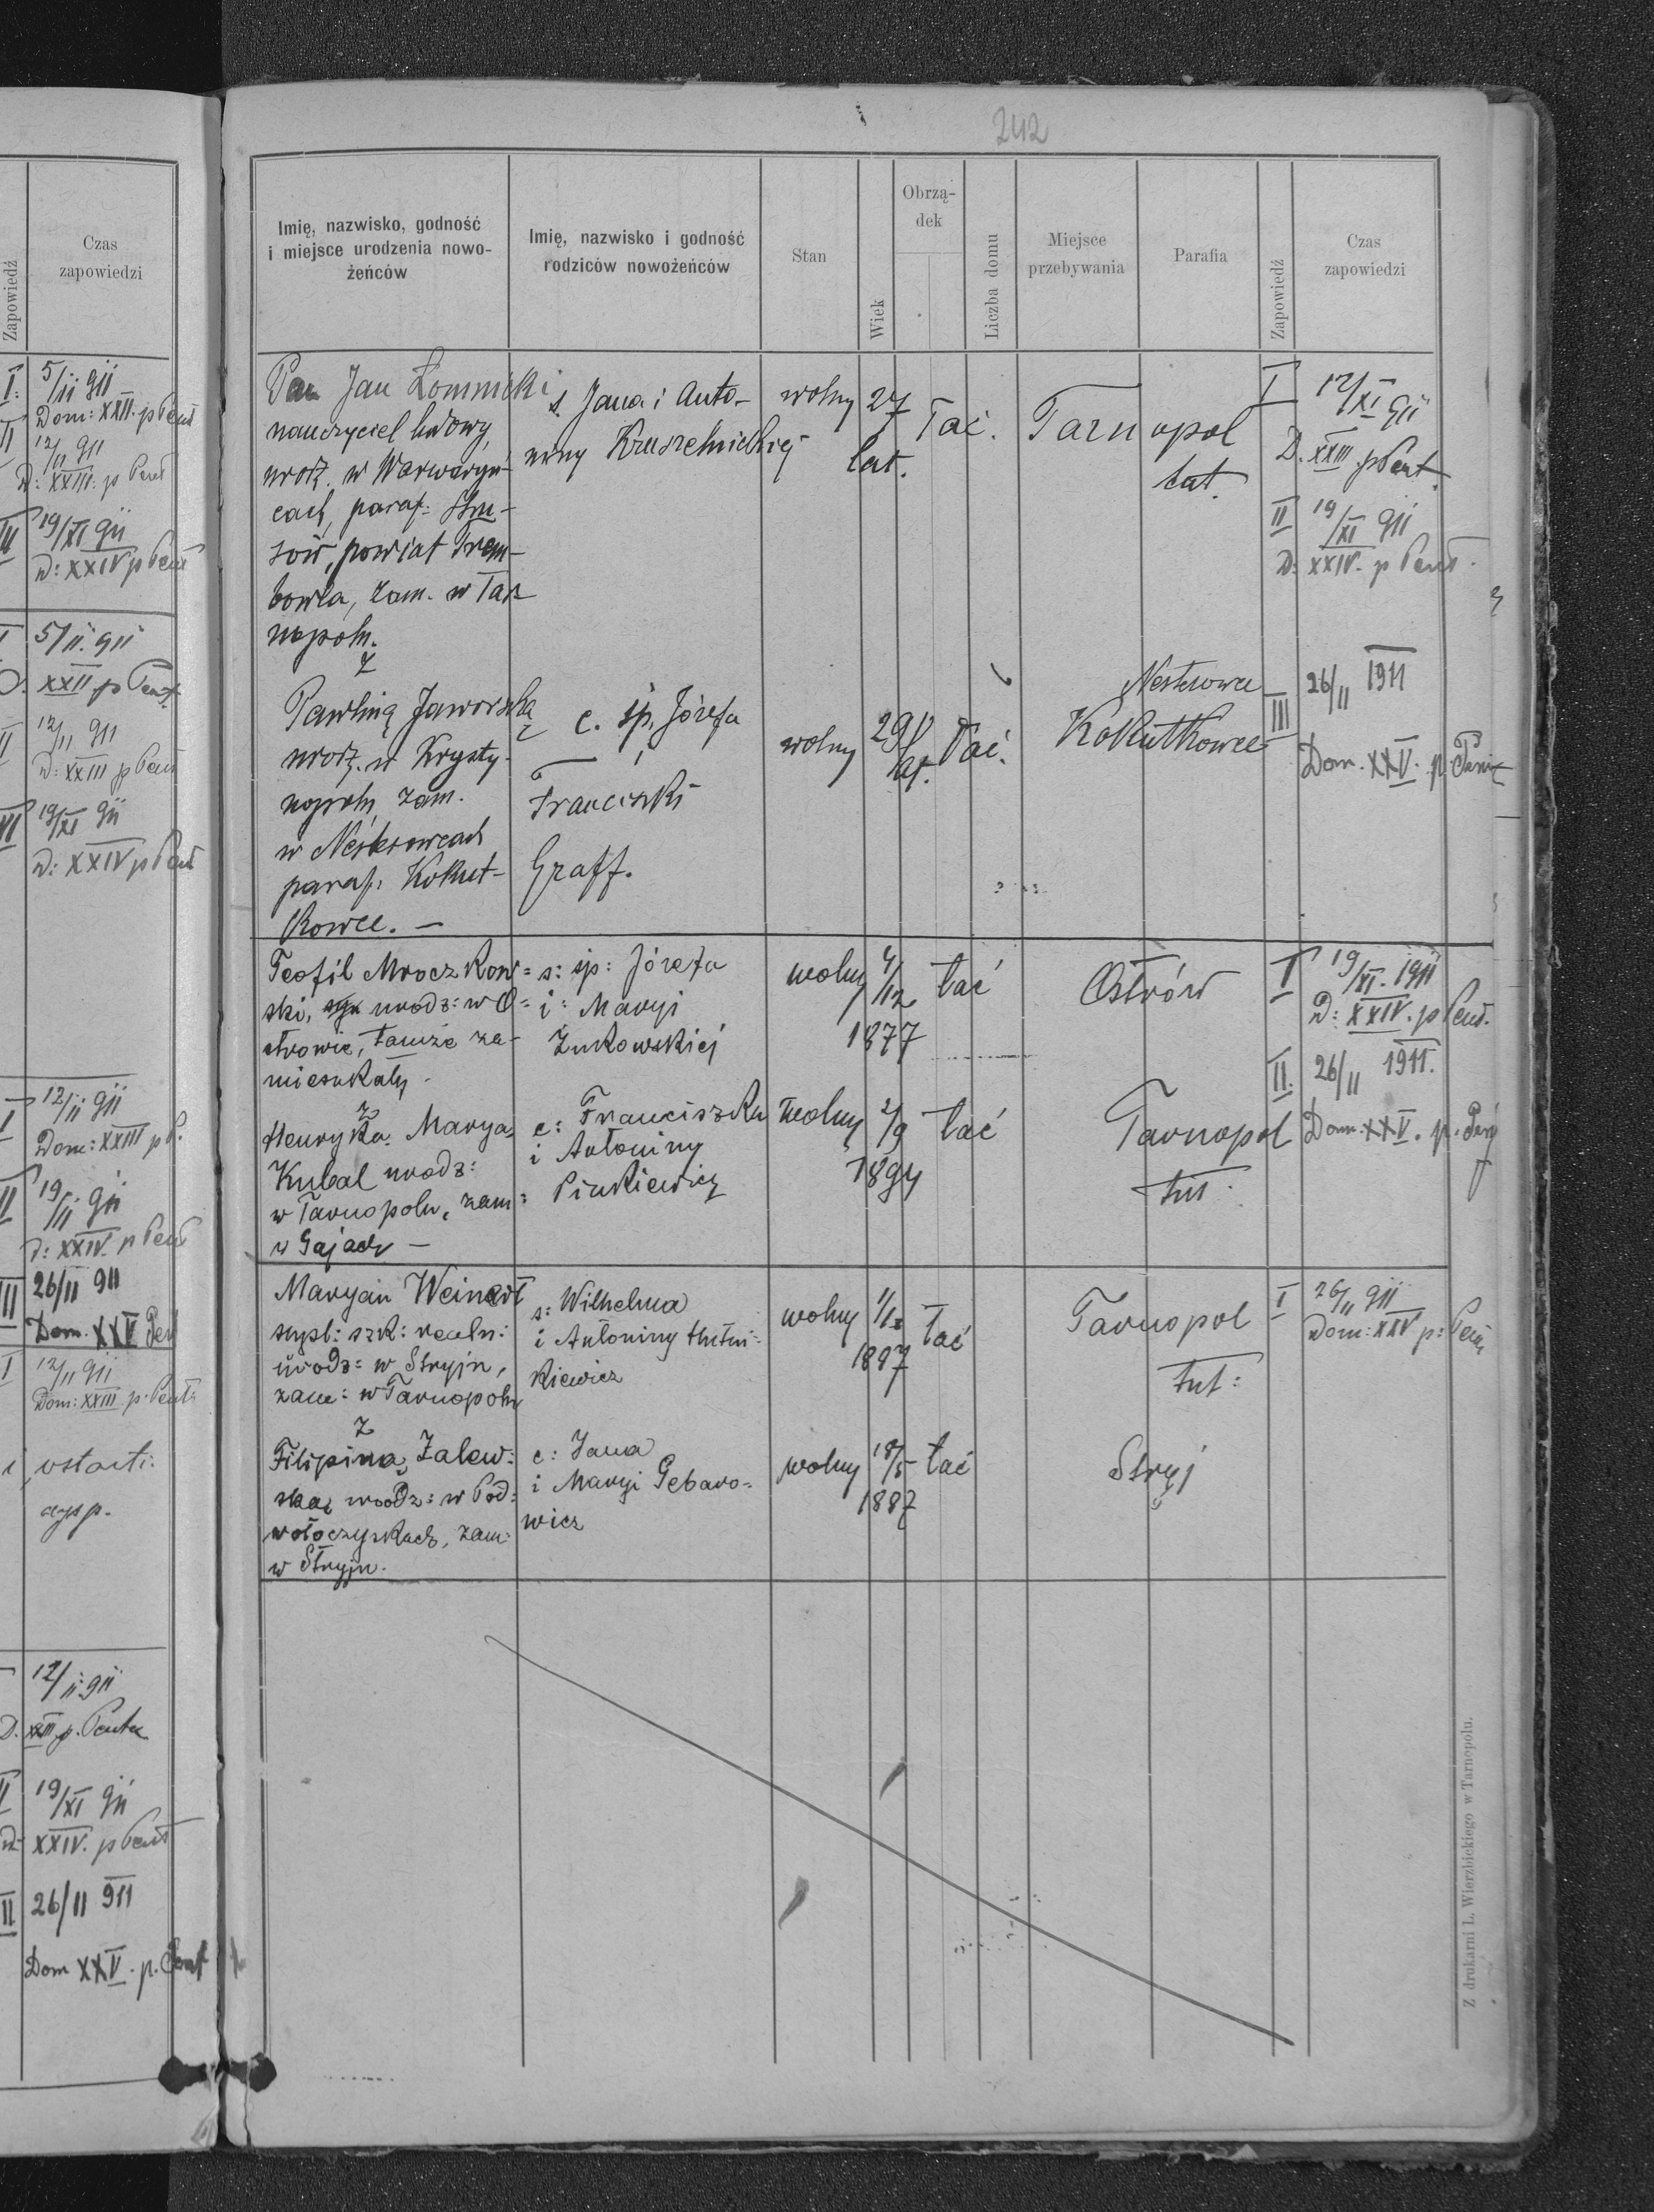 Zapowiedź
Czas
zapowiedzi
I: 5/11 911
Dom: XXII. p Pent
II 12/11 911
D: XXIII: p Pent
III 19/XI 911
D: XXIV p Pent
I 5/11. 911
D. XXII p Pent.
II 12/11 911
D: XXIII p Pent
19/XI 911
D: XXIV p Pent
I 12/11 911
Dom: XXIII p P.
II 19/11 911
D: XXIV. p Pent
III 26/11 911
Dom. XXV Pen
I 12/11 911
Dom: XXIII p. Pent:
12/11 911
D. p. Pent
II 19/XI 911
D XXIV. p Pent
II 26/11 911
Dom XXV. p. Pent
242
Imię, nazwisko, godność
i miejsce urodzenia nowo-
żeńców
Imię, nazwisko i godność
rodziców nowożeńców
Stan
Wiek
Obrzą-
dek
Liczba domu
Miejsce
przebywania
Parafia
Zapowiedź
Czas
zapowiedzi
Pan Jan Łomnicki
nauczyciel ludowy,
urodz. w Warwaryń-
cach, paraf: Stru-
sów, powiat Trem-
bowla, zam. w Tar
nopolu.
s. Jana i Anto-
niny Kruszelnickiej
wolny
27
lat.
łać.
Tarnopol
łat.
I 12/XI 911
D. XXIII p Pent.
II 19/XI 911
D: XXIV. p Pent.
z
Pawliną Jaworską
urodz. w Krysty-
nopolu, zam.
w Nesterowcach
paraf. Kokut-
kowce. —
c. śp. Józefa
i
Franciszki
Graff.
wolny
29
łać.
Nesterowce
Kokutkowce
III 26/11 1911
Dom. XXV. p. Pent
Teofil Mroczkow=
ski, urodz: w O=
strowie, tamże za-
mieszkały.
s: śp: Józefa
i: Maryi
Żukowskiej
wolny
4/12
1877
łać
Ostrów
I 19/XI. 1911
D: XXIV. p Pent.
II. 26/11 1911.
Dom. XXV. p. Pent
z
Henryka Marya
Kubal urodz:
w Tarnopolu, zam:
w Gajach —
c: Franciszka
i Antoniny
Pinkiewicz
wolny
2/9
1894
łać
Tarnopol
tut.
Maryan Weinert
supl: szk: realn:
urodz: w Stryju,
zam: w Tarnopolu
s: Wilhelma
i Antoniny Hutni-
kiewicz
wolny
1887
łać
Tarnopol
tut:
I 26/11 911
Dom: XXV p: Pent
z
Filipina Zalew:
ską urodz: w Pod:
wołoczyskach, zam:
w Stryju.
c: Jana
i Maryi Gebaro-
wicz
wolny
18/5
1887
łać
Stryj
Z drukarni L. Wierzbickiego w Tarnopolu.